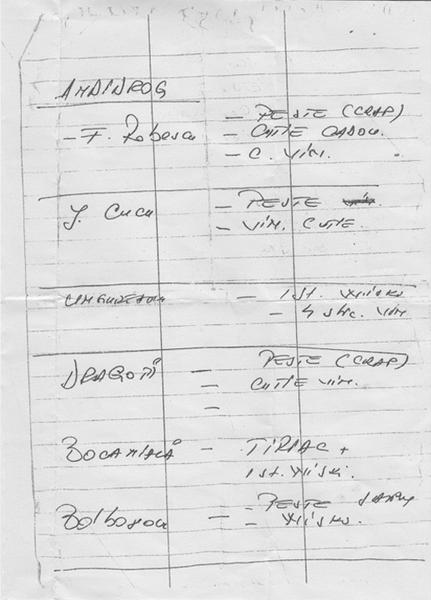 - F. Robescu
- PESTE (CRAP)
- CUTIE CADOU.
- C. VIN.
J. CUCU
- PESTE
- VIN. CUTIE.
- 1 ST. WISKI
- 4 stic. VIN
DRAGOTĂ
- PESTE (CRAP)
- CUTIE VIN.
-
BOCANIALĂ - TIRIAC +
1 st. WISKI.
- PESTE
- WISKI.